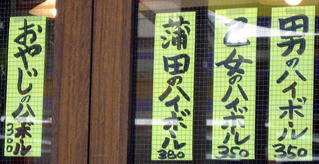 男のハイボール
350
乙女のハイボール
350
蒲田のハイボール
380
おやじのハイボール
300